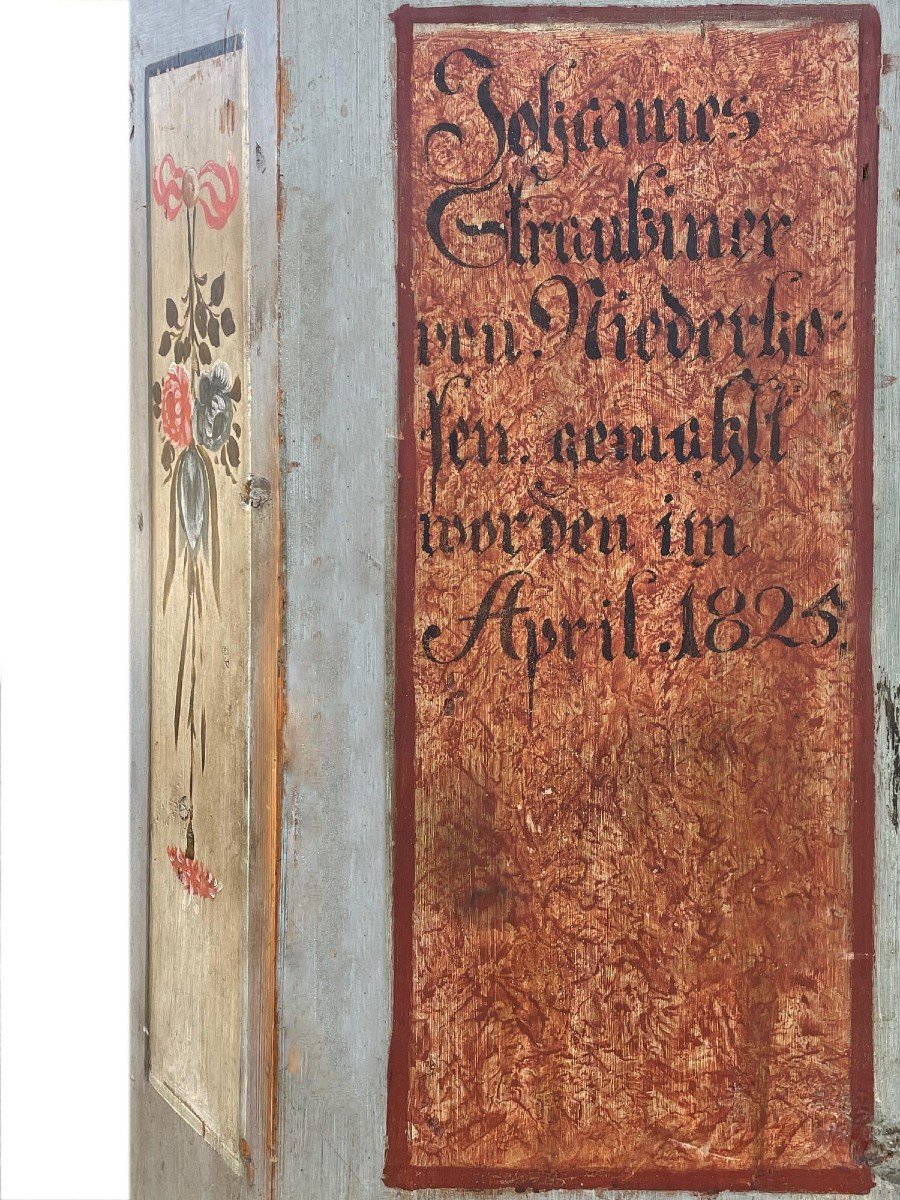 Johannes
Straubiner
von Niederho=
fen. gemahlt
worden im
April. 1825.